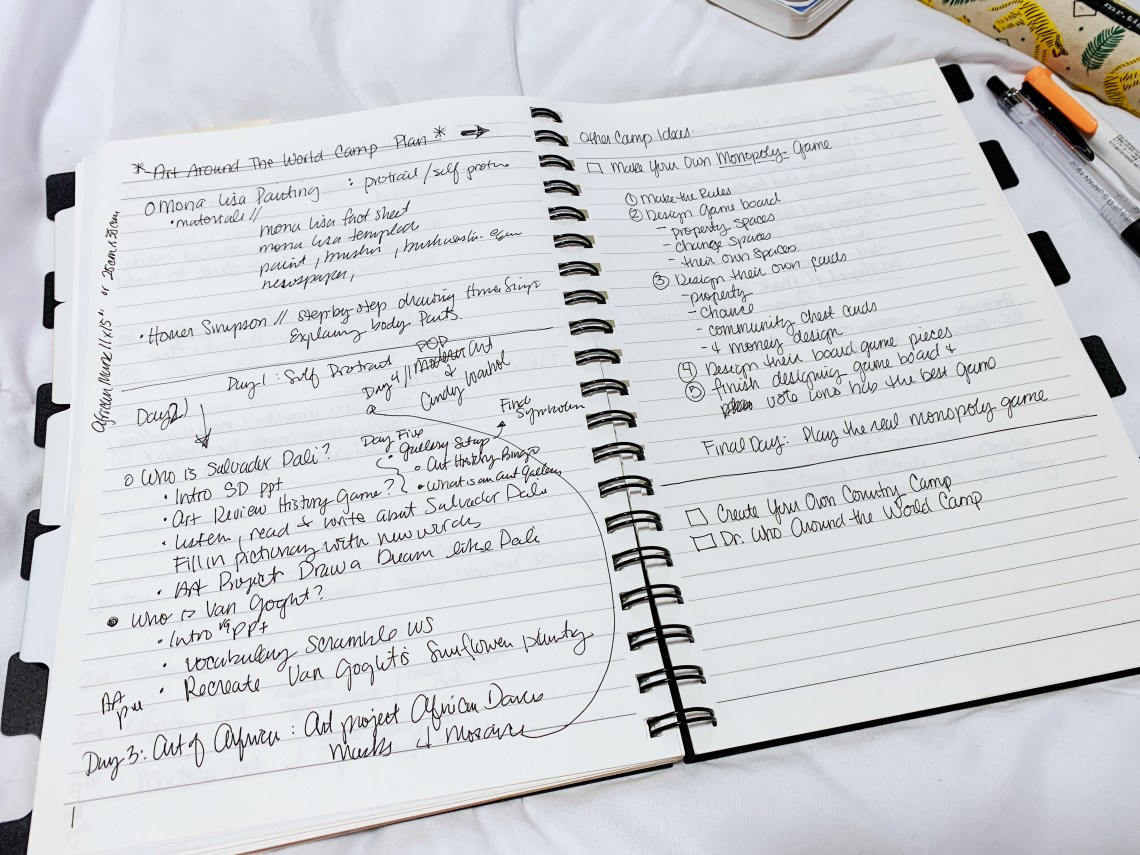 * Art Around The World Camp Plan *
O Mona Lisa Painting : protrait / self protra
• materials //
mona lisa fact sheet
mona lisa templed
paint, brushes,
newspaper,
African Mask 11x15" or 28cm x 38cm
• Homer Simpson // step by step drawing Homer Simpso
Explaing body Parts
Day 1: Self Protrait
Day 4 // POP Art
Candy Warhol
Day 2)
Day Five
• gallery setup
Final
• Art History Bingo
• What is an art gallery
O Who is Salvador Dali?
• Intro SD ppt
• Art Review History Game?
• Listen, read & write about Salvador Dali
Fill in pictionary with new words
• Art Project Draw a Dream like Dali
• Who is Van Goght?
• Intro VG ppt
• Vocabulary Scramble WS
• Recreate Van Goght's Sunflower painting
Day 3: Art of Africa: Art project African Dance
Masks & Mosaics
Other Camp Ideas:
Make Your Own Monopoly Game
① Make the Rules
② Design Game board
- property spaces
- change spaces
- their own spaces
③ Design their own cards
- property
- chance
- community chest cards
- & money design
④ Design their board game pieces
⑤ finish designing game board &
vote who has the best game
Final Day: Play the real monopoly game
Create Your Own Country Camp
Dr. Who Around the World Camp
mr.